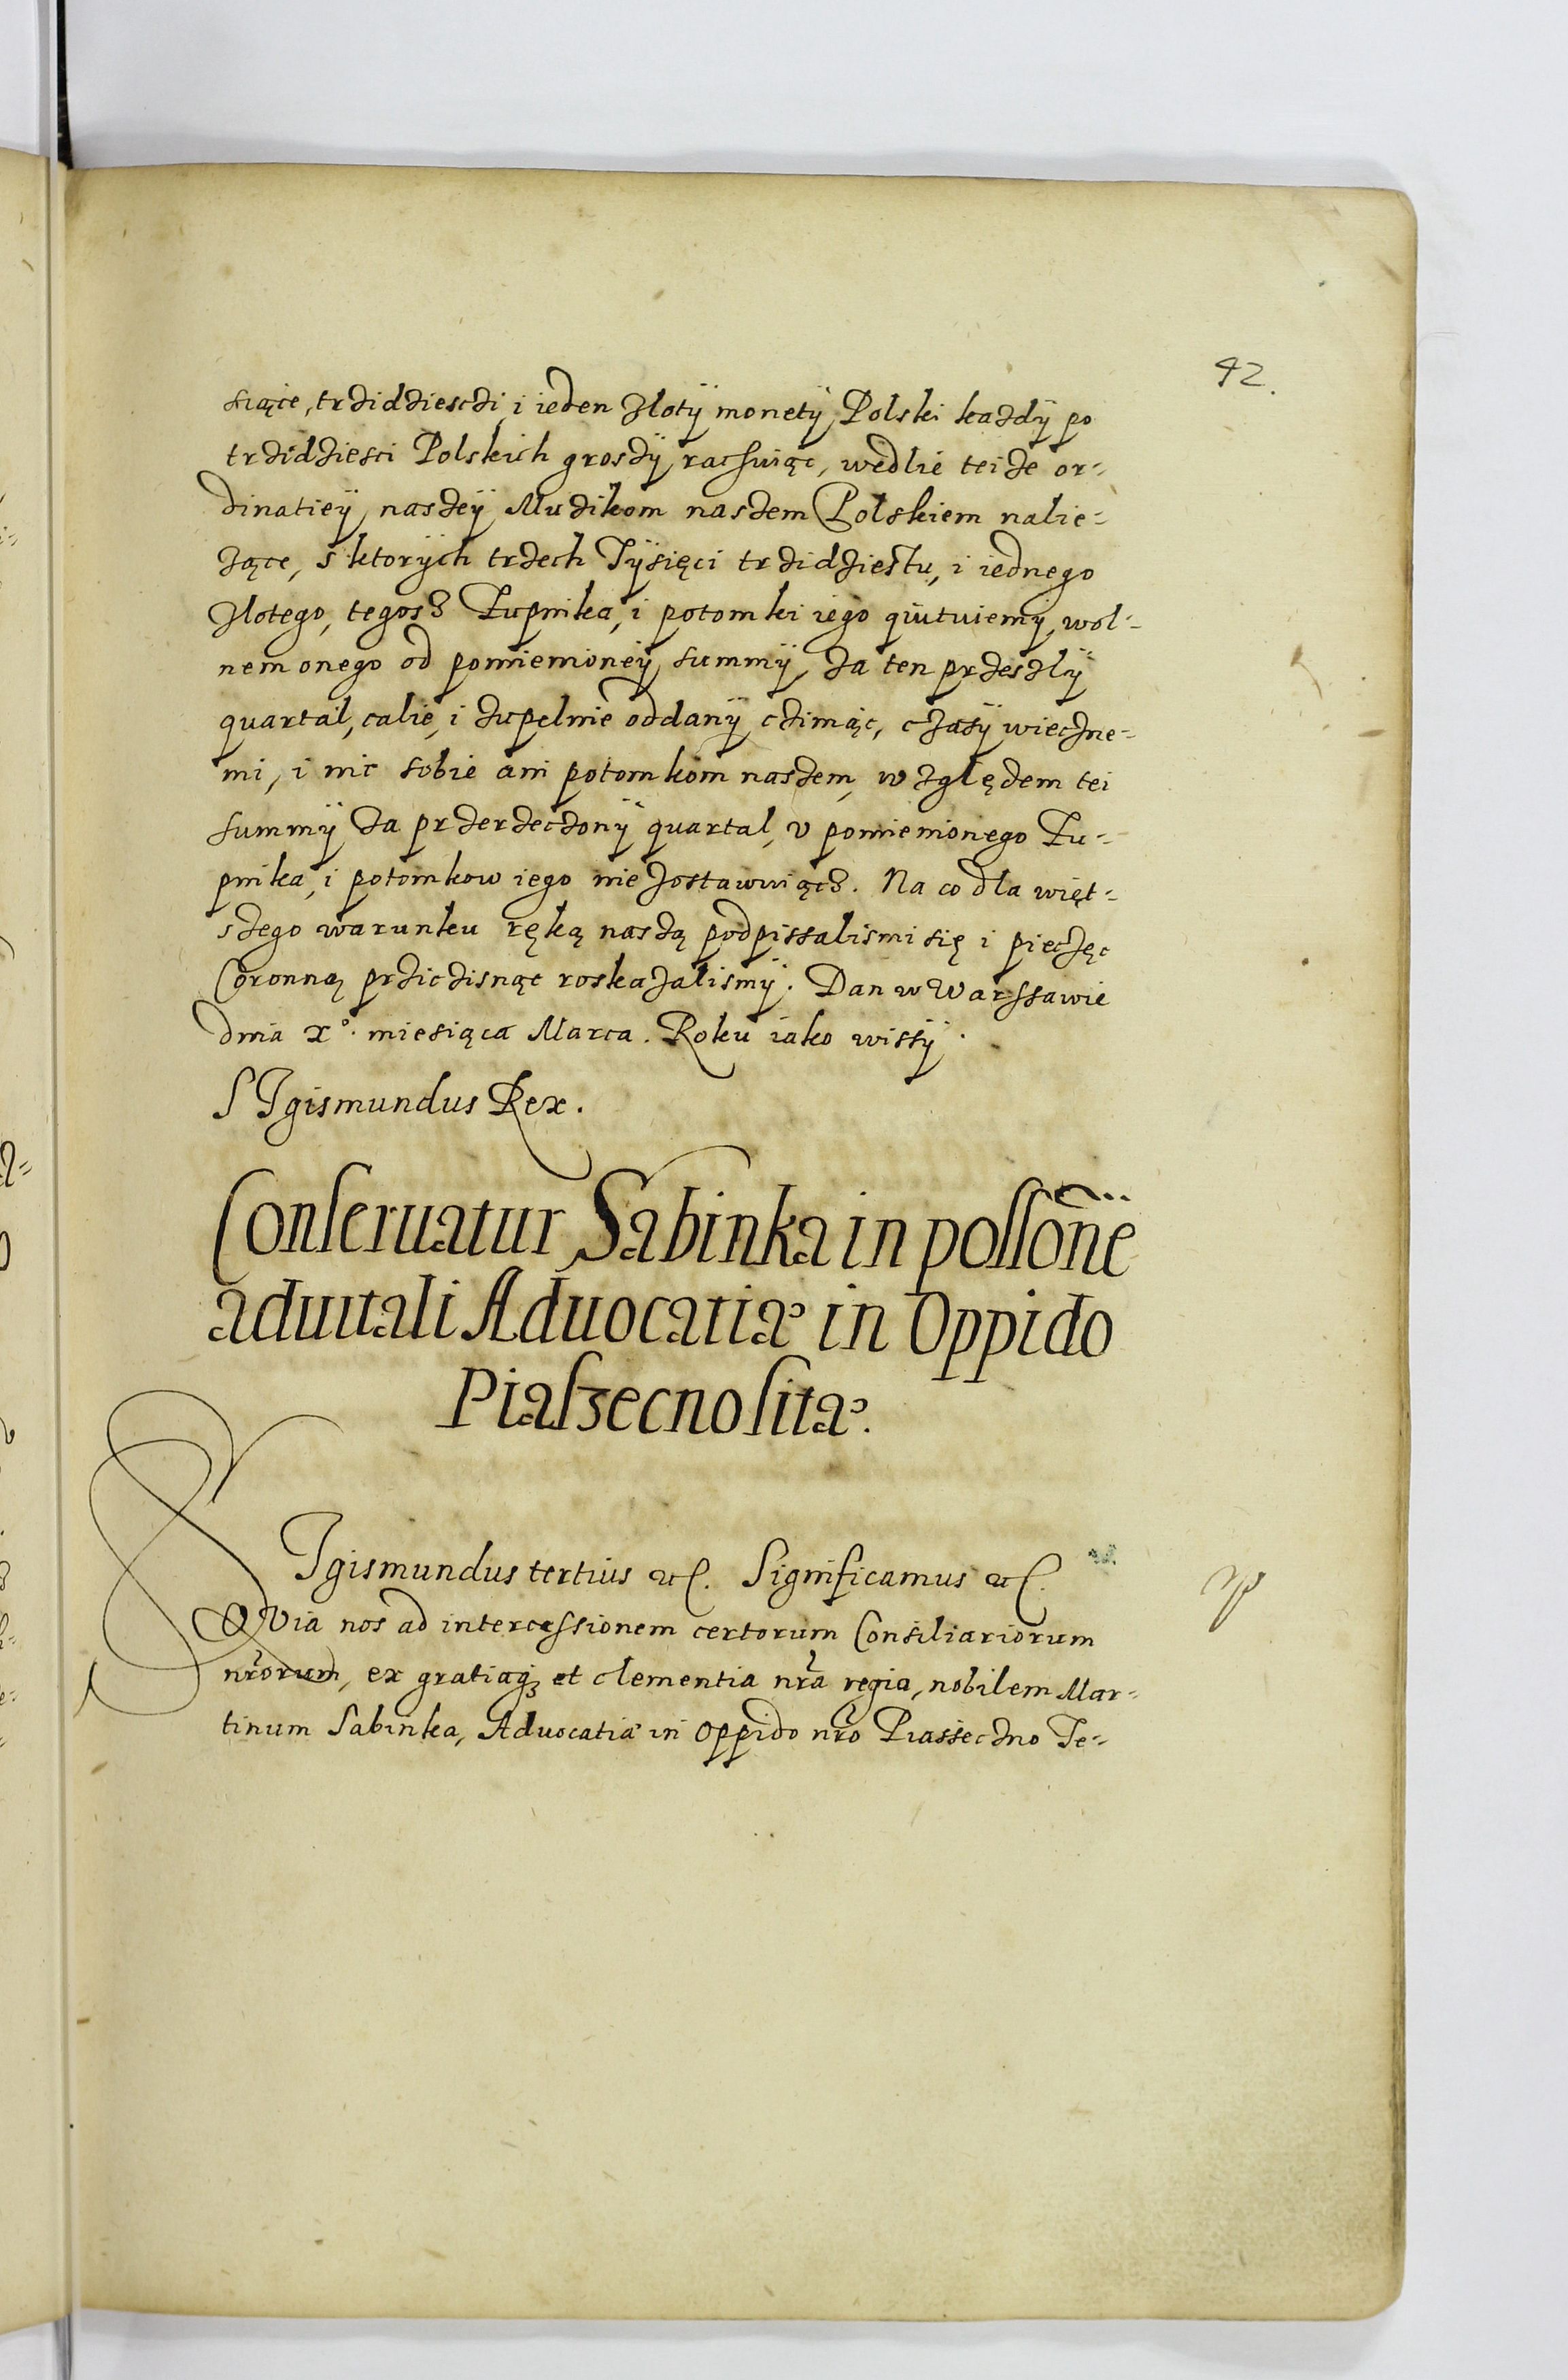 42.
siące, trzidziesczi, i ieden Złotÿ monetÿ Polski każdÿ po
trzidziesci Polskich groszÿ rachuiąc, wedlie teize or-
dinatieÿ naszeÿ Muzikom naszem Polskiem nalie-
żące, s ktorÿch trzech Tÿsięci trzidziestu, i iednego
Złotego, tegosz Żupnika, i potomki iego quituiemÿ, wol-
nem onego od pomienioneÿ summÿ za ten przeszlÿ
quartal, calie, i zupelnie oddanÿ cziniąc, czasÿ wieczne-
mi, i nic sobie ani potomkom naszem, względem tei
summÿ za przerzeczonÿ quartal, v pomienionego Żu-
pnika, i potomkow iego nie zostawuiącz. Na co dla więt-
szego warunku ręką naszą podpissalismi się i pieczęc
Coronną prziczisnąc roskazalismÿ. Dan w Warssawie
dnia xº. miesiąca Marca. Roku iako wissÿ.
SIgismundus Rex.
Conseruatur Sabinka in possone
aduitali Aduocatiæ in Oppido
Piaszecno sitæ.
SIgismundus tertius etc. Significamus etc.
QVia nos ad intercessionem certorum Consiliariorum
nrorum, ex gratiaq; et clementia nra regia, nobilem Mar-
tinum Sabinka, Aduocatiæ in Oppido nro Piasseczno Te-